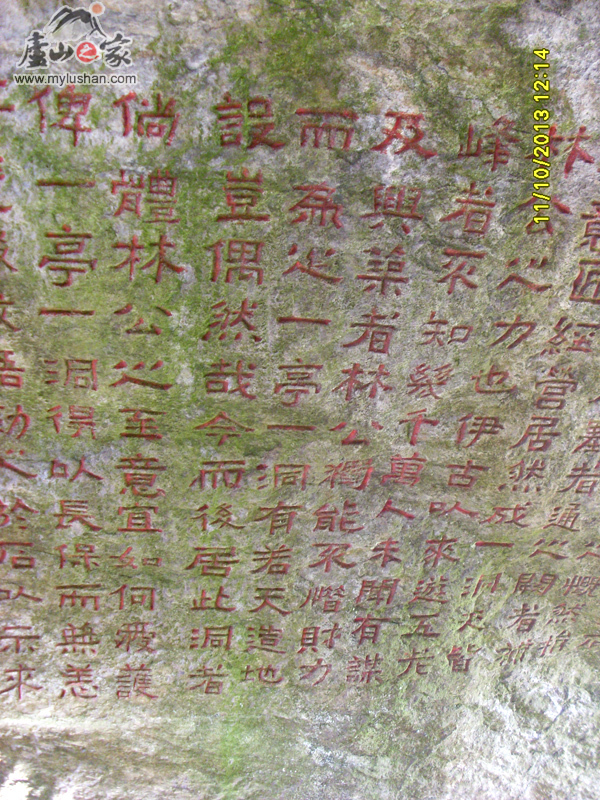 慨然捐
匠經營居然成一洞天皆
林公之力也伊古以來遊五老
峰者不知幾千萬人未聞有謀
及興築者林公獨能不惜財力
而為之一亭一洞有若天造地
設豈偶然哉今而後居此洞者
倘體林公之至意宜如何愛護
俾一亭一洞得以長保而無恙
語勒之於石以示來
廬山之家
www.mylushan.com
11/10/2013 12:14